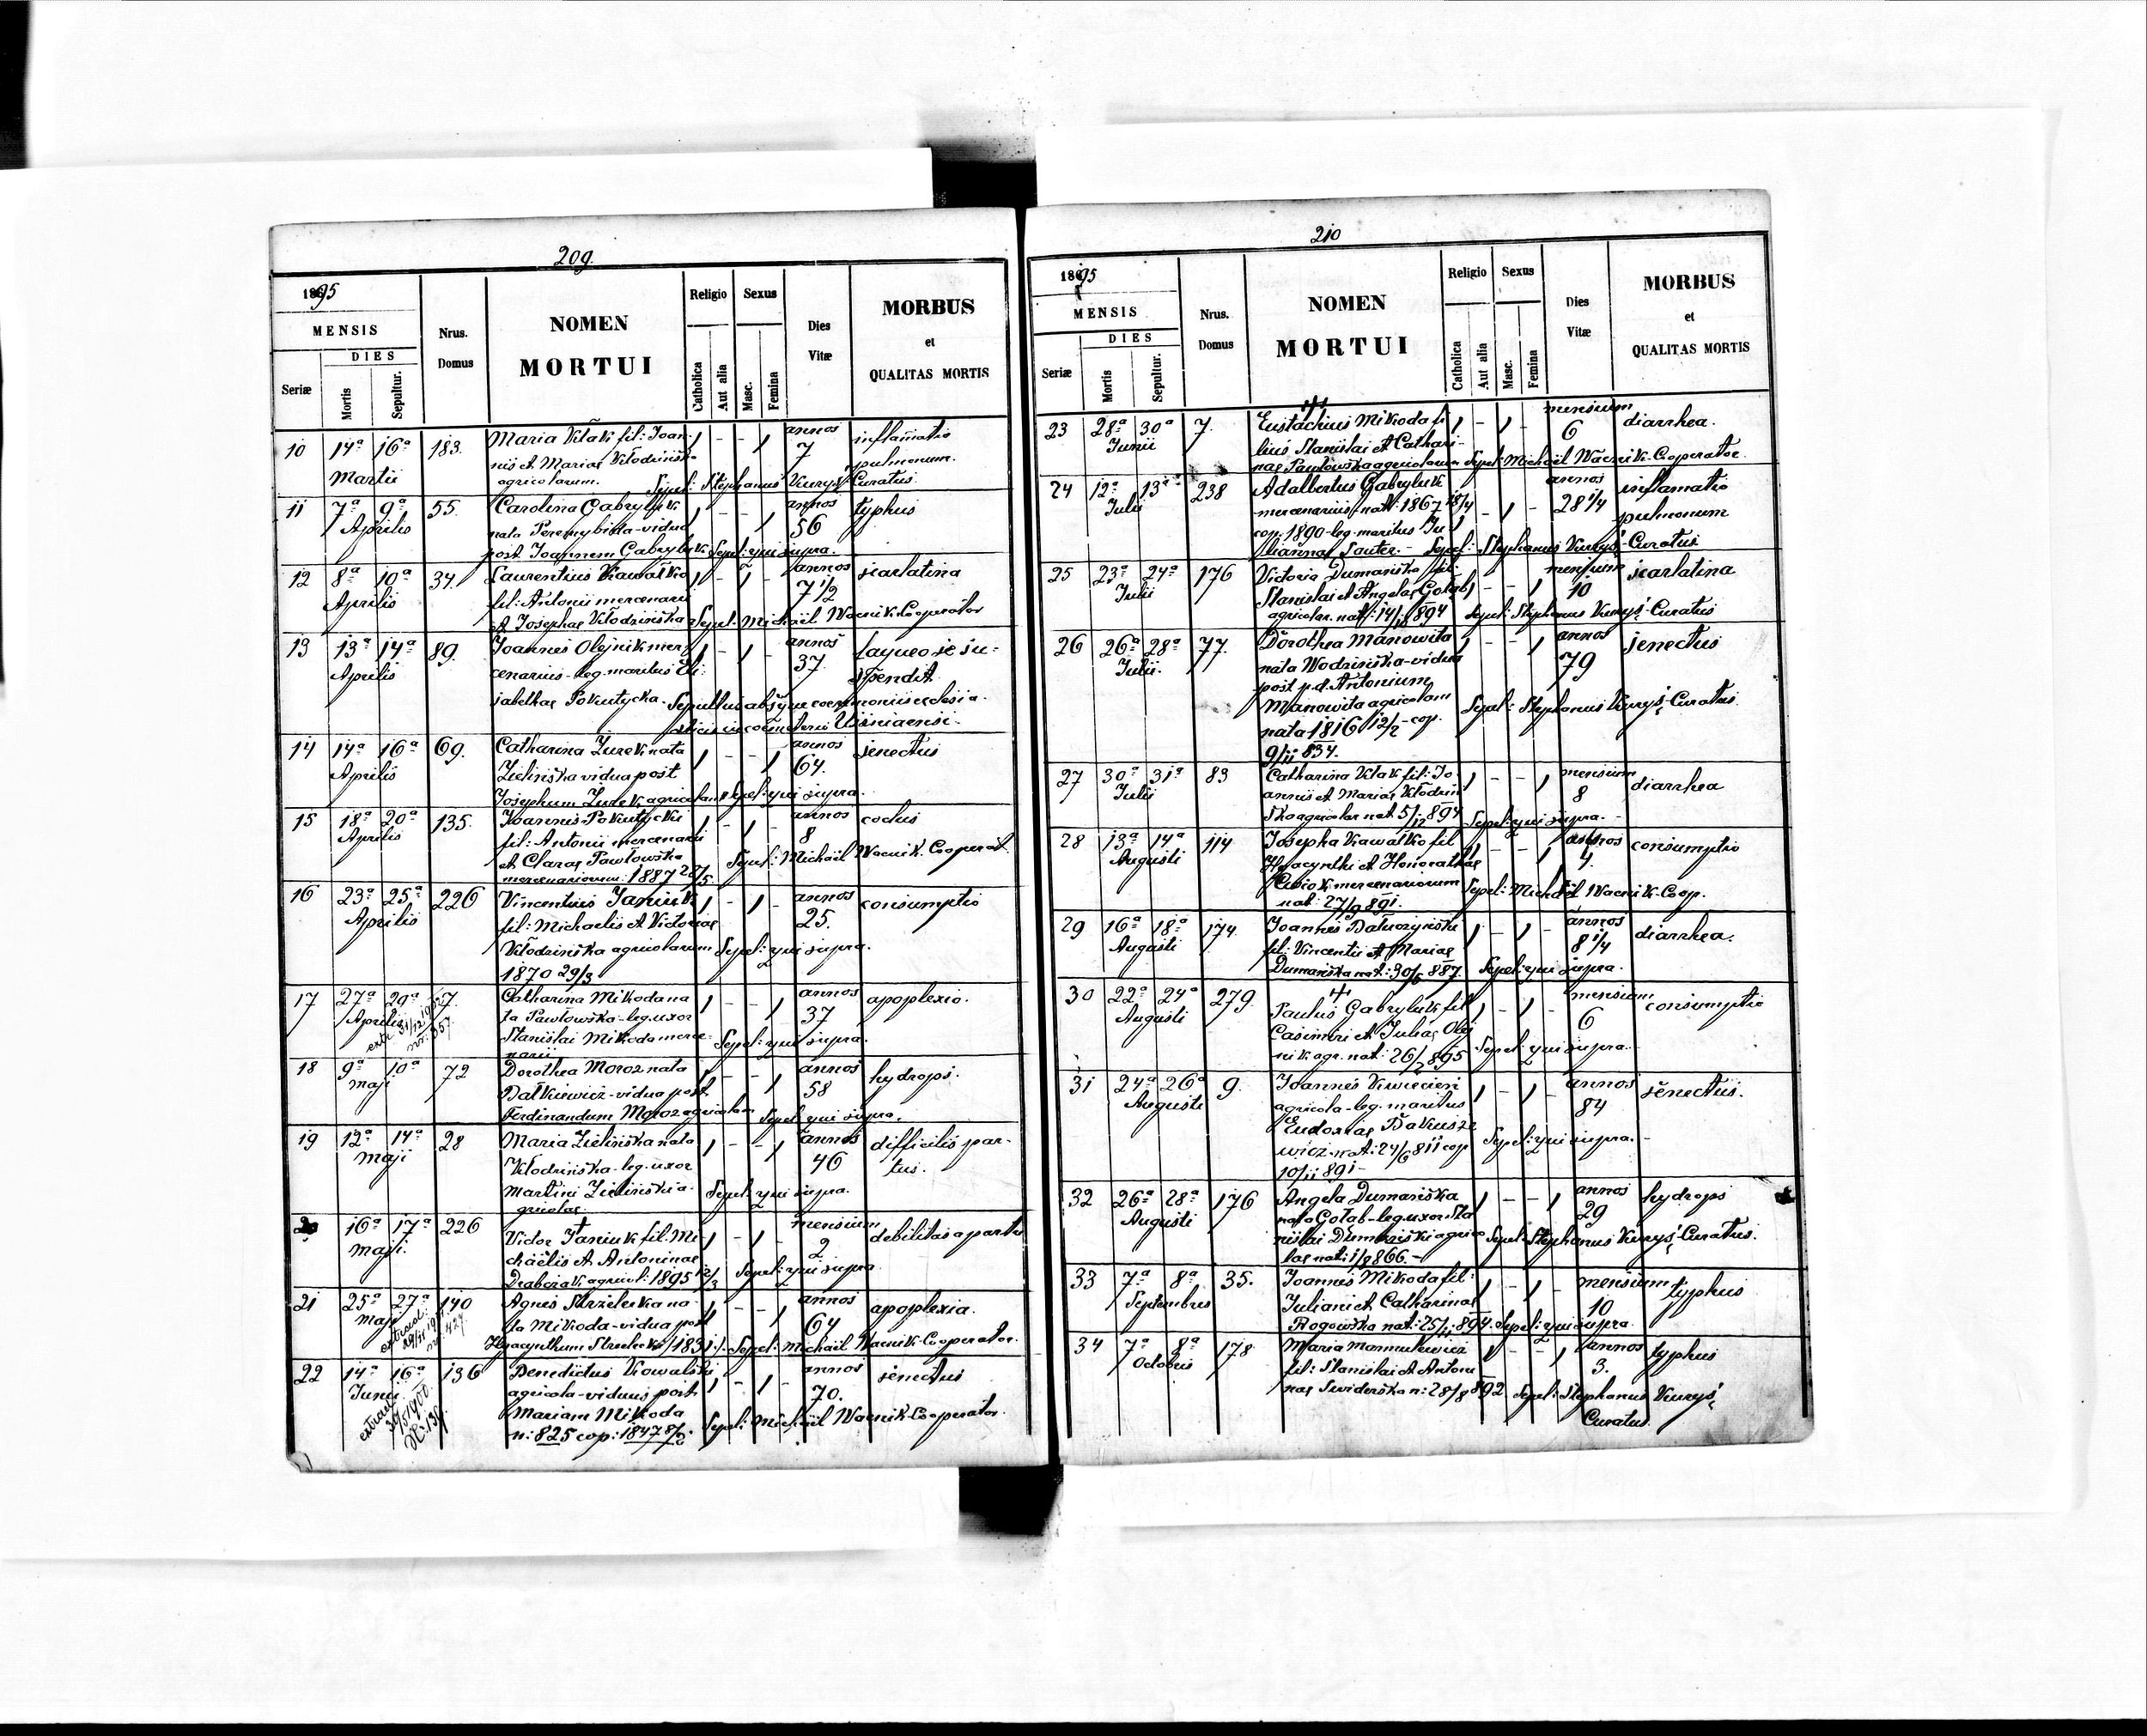 209.
1895
MENSIS
DIES
Seriæ
Mortis
Sepultur.
Nrus.
Domus
NOMEN
MORTUI
Religio
Catholica
Aut alia
Sexus
Masc.
Femina
Dies
Vitæ
MORBUS
et
QUALITAS MORTIS
10 14ª 16ª 183. Maria Ktak fil: Joan- 1 - - 1 annos inflamatio
Martii nis et Mariae Kłodzińska 7 pulmonum.
agricolarum. Sepel: Stephanus Kuryś Curatus.
11 7ª 9ª 55. Carolina Gabryluk 1 - - 1 annos typhus
Aprilis nata Peremybida - vidua 56
post Joannem Gabryluk Sepel: qui supra.
12 8ª 10ª 34. Laurentius Kawałko 1 - 1 - annos scarlatina
Aprilis fil: Antonii mercenarii 7 1/2
et Josephae Kłodzińska Sepel: Michaël Wacnik Cooperator
13 13ª 14ª 89. Joannes Olejnik mer- 1 - 1 - annos laqueo se su-
Aprilis cenarius - leg. maritus Eli- 37. spendit
sabethae Pokutycka. Sepultus absque caeremoniis ecclesia-
sticis in coemeterio Wiśniaensi.
14 14ª 16ª 69. Catharina Żurek nata 1 - - 1 annos senectus
Aprilis Zielińska vidua post 64.
Josephum Żurek agricolam Sepel: qui supra.
15 18ª 20ª 135. Joannes Pokutycki 1 - 1 - annos
Aprilis fil: Antonii mercenarii 8
et Clarae Pawłowska Sepel: Michaël Wacnik. Cooperat.
mercenariorum. 1887 20/5.
16 23ª 25ª 226 Vincentius Janiuk 1 - 1 - annos consumptio
Aprilis fil: Michaelis et Victoriae 25.
Kłodzińska agricolarum Sepel: qui supra.
1870 29/3
17 27ª 29ª 7. Catharina Mikoda na- 1 - - 1 annos apoplexio.
Aprilis ta Pawłowska - leg. uxor 37
Stanislai Mikoda merce- Sepel: qui supra.
narii
18 9ª 10ª 72 Dorothea Moroz nata 1 - - 1 annos hydrops.
Maji Bałkiewicz - vidua post 58
Ferdinandum Moroz agricolam Sepel: qui supra.
19 12ª 14ª 28 Maria Zielińska nata 1 - - 1 annos difficilis par-
Maji Kłodzińska - leg. uxor 46 tus.
Martini Zieliński a- Sepel: qui supra.
gricolae
20 16ª 17ª 226 Victor Janiuk fil. Mi- 1 - 1 - mensium debilitas a partu
Maji. chaëlis et Antoninae 2
agricol: 1895 12/3 Sepel: qui supra
21 25ª 27ª 140 Agnes Strzelecka na- 1 - - 1 annos apoplexia.
Maji ta Mikoda - vidua post 64
Hyacynthum Sepel: Michaël Wacnik Cooperator.
22 14ª 16ª 136 Benedictus Kowalski 1 - 1 - annos senectus
Junii agricola - viduus post 70.
Mariam Mikoda Sepel: Michaël Wacnik Cooperator.
n: 825 cop: 1847
210
1895
MENSIS
DIES
Seriæ
Mortis
Sepultur.
Nrus.
Domus
NOMEN
MORTUI
Religio
Catholica
Aut alia
Sexus
Masc.
Femina
Dies
Vitæ
MORBUS
et
QUALITAS MORTIS
23 28ª 30ª 7. Eustachius Mikoda fi- 1 - 1 - mensium diarrhea.
Junii lius Stanislai et Cathari- 6
nae Pawłowska agricolarum Sepel: Michaël Wacnik. Cooperator.
24 12ª 13ª 238 Adalbertus Gabryluk annos inflamatio
Julii mercenarius nat: 1867 18/4 1 - 1 - 28 1/4 pulmonum
cop. 1890 - leg. maritus Ju-
liannae Sauter. - Sepel: Stephanus Kuryś - Curatus
25 23ª 24ª 176 Victoria Dumańska fil: mensium scarlatina
Julii Stanislai et Angelae Gołąb 1 - - 1 10
agricolar. nat: 894 Sepel: Stephanus Kuryś - Curatus
26 26ª 28ª 77. Dorothea Manowita 1 - - 1 annos senectus
Julii. nata Wodzińska - vidua 79
post p.d. Antonium
Manowita agricolam Sepel: Stephanus Kuryś. Curatus.
nata 1816 12/2 - cop.
9/11 834.
27 30ª 31ª 83 Catharina Ktak fil: Jo- 1 - - 1 mensium diarrhea
Julii annis et Mariae Kłodziń- 8
ska agricolar nat. 5/12 894 Sepel: qui supra. -
28 13ª 14ª 114 Josepha Kawałko fil 1 - - 1 annos consumptio
Augusti Hyacynthi et Honorathae 4.
mercenariorum Sepel: Michaël Wacnik. Coop.
nat: 27/9 891.
29 16ª 18ª 174. Joannes Batuczyński 1 - 1 - annos diarrhea.
Augusti fil: Vincentii et Mariae 8 1/4
Dumańska nat: 30/5 887. Sepel: qui supra.
30 22ª 24ª 279. Paulus Gabryluk fil 1 - 1 - mensium consumptio
Augusti Casimiri et Juliae Olej- 6
nik agr. nat: 26/2 895 Sepel: qui supra.
31 24ª 26ª 9. Joannes Kwiecień 1 - 1 - annos senectus.
Augusti agricola - leg. maritus 84
Eudoxiae Bakusze-
wicz. nat: 24/6 811 cop Sepel: qui supra. -
10/11 891 -
32 26ª 28ª 176 Angela Dumańska 1 - - 1 annos hydrops
Augusti nata Gołąb - leg. uxor Sta- 29
nislai Dumański agrico- Sepel: Stephanus Kuryś Curatus.
lae nat: 1/8 866. -
33 7ª 8ª 35. Joannes Mikoda fil: 1 - 1 - mensium typhus
Septembris Juliani et Catharinae 10
Rogowska nat: 25/11 894. Sepel: qui supra.
34 7ª 8ª 178 Maria 1 - - 1 annos typhus
Octobris fil: Stanislai et Antoni- 3.
nae Swiderska n: 28/8 892 Sepel: Stephanus Kuryś
Curatus.